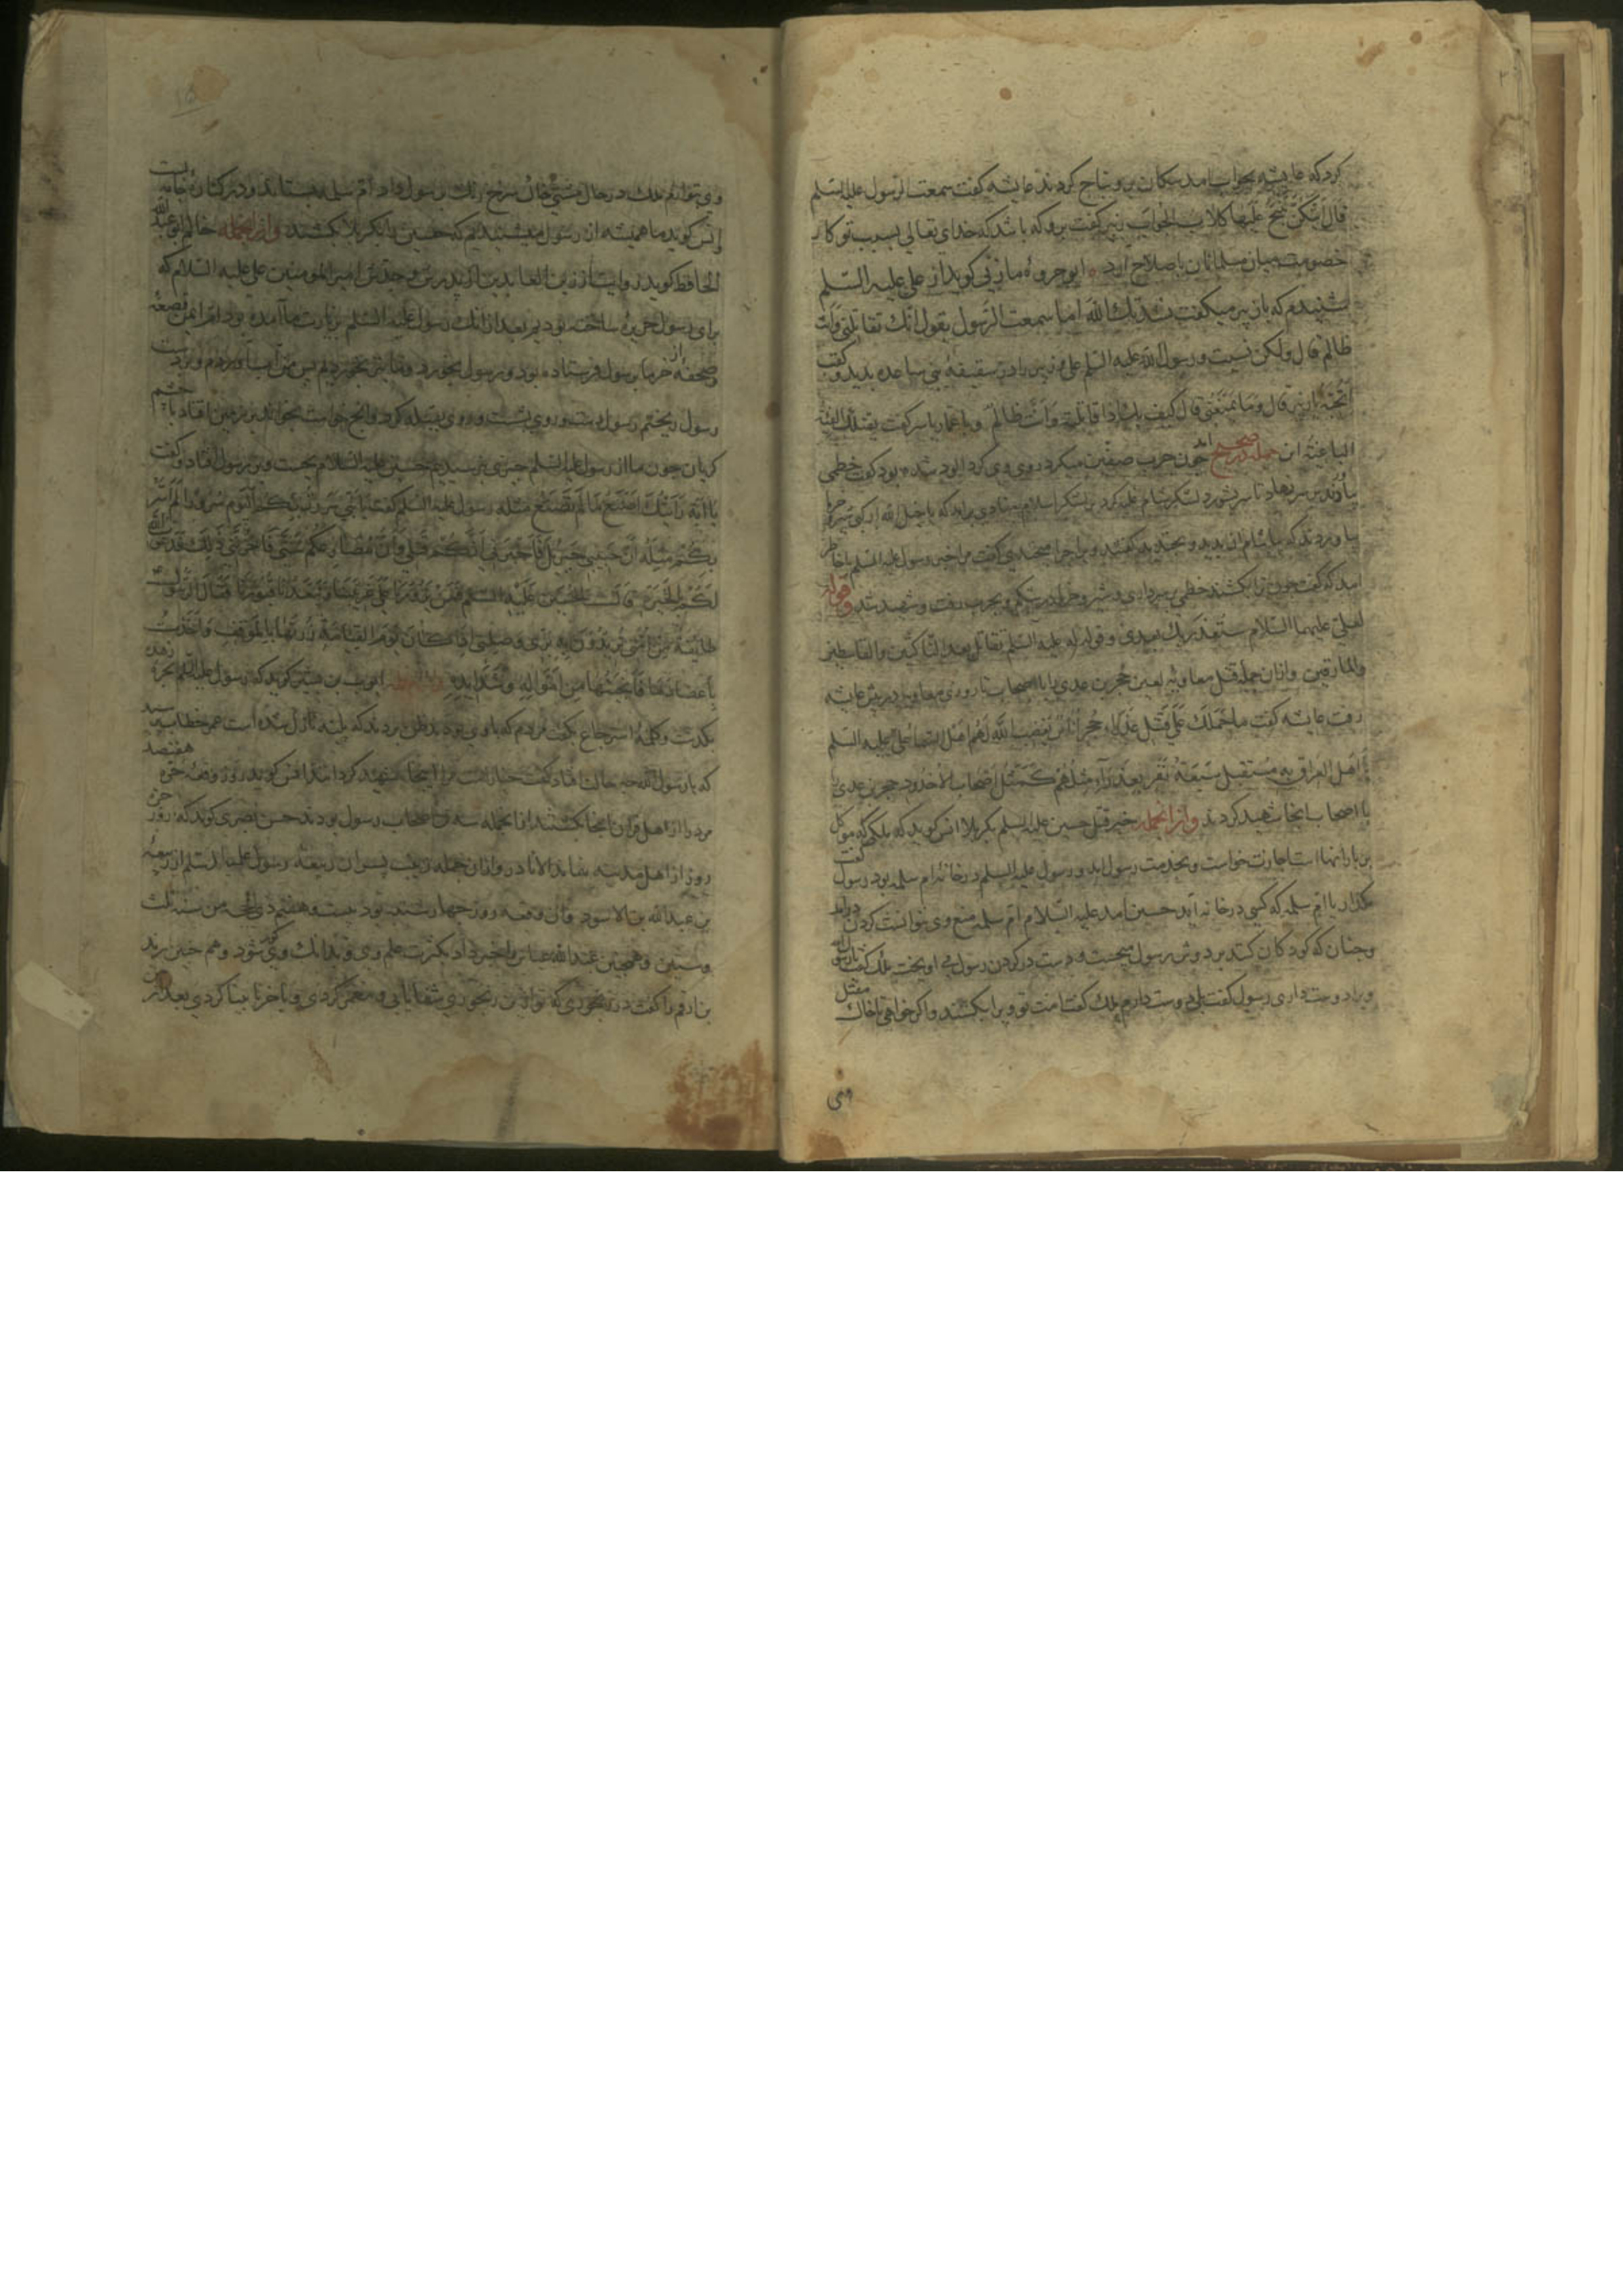 کرد که عایشه بجواب آمد سکان برو نباح کردند عایشه کفت سمعت الرسول علیه السلم
قال تنبح علیها کلاب الحواب زبیر کفت برو که باشد که خدای تعالی بسبب تو کار
خصومت میان مسلمانان باصلاح آرد ابو جروه مازنی کوید از علی علیه السلم
شنیدم که بازبیر میکفت نشدتک الله اما سمعت الرسول یقول انک تقاتلنی وانت
ظالم قال ولکن نسیت و رسول الله علیه السلم علی و زبیر را در سقیفه بنی ساعده بدید وکفت
اتحبه یا زبیر قال وما یمنعنی قال کیف بک اذا قاتلته وانت ظالم و با عمار یاسر کفت یقتلک الفئة
الباغیة این جمله صحیح آمد چون حرب صفین میکرد روی وی کرد آلود شده بود کفت خطمی
بیاورند تا سر بشورد لشکر شام غلبه کرد بر لشکر اسلام منادی برآمد که یا خیل الله ارکبی شیر و خرما
بیاوردند که بیاشام آن بدید و بخندید کفتند ویرا چرا میخندی کفت مرا خبر رسول علیه السلم با خاطر
آمد که کفت چون ترا بکشند خطمی بر سر داری و شیر و خرما در شکم و بحرب رفت و شهید شد وقوله
لعلی علیهما السلام ستغدر بک بعدی وقوله له علیه السلم تقاتل بعدی الناکثین والقاسطین
والمارقین وازان جمله قتل معاویه لعین حجر بن عدی را با اصحاب تا روزی معاویه در پیش عایشه
رفت عایشه کفت ما حملک علی قتل عذراء حجر اناس یغضب الله لهم اهل السما علی علیه السلم
یا اهل العراق سیقتل سبعة نفر بعذرآء مثلهم کمثل اصحاب الاخدود حجر بن عدی
با اصحاب انجا شهید کردند وازانجمله خبر قتل حسین علیه السلم بکربلا انس کوید که ملکی که موکل
بن بارانها است اجازت خواست و بخدمت رسول آمد و رسول علیه السلم در خانه ام سلمه بود رسول کفت
مکذار یا ام سلمه که کسی در خانه آید حسین آمد علیه السلام ام سلمه منع وی نتوانست کردن درآمد
وچنان که کودکان کنند بر دوش رسول میجست و دست در کردن رسول می آویخت ملک کفت یا رسول الله
ویرا دوست داری رسول کفت بلی دوست دارم ملک کفت امت تو ویرا بکشند و اکر خواهی تا خاک مقتل
وی
وی بتو دهم ملک در حال مشتی خاک سرخ رنک برسول داد ام سلمه بستاند و در کنار جامه بست
وانس کوید ما همیشه از رسول میشنیدیم که حسین را بکربلا بکشند وازانجمله خالد ابو عبد الله
الحافظ کوید روایت از زین العابدین از پدرش و جدش امیر المومنین علی علیه السلام که
برای رسول خزیره ساخته بودیم بعد ازانک رسول علیه السلم بزیارت ما آمده بود ام ایمن قصعه
وصحفه از خرما برسول فرستاده بود و رسول بخورد و ما نیز بخوردیم پس من آب آوردم و بر دست
رسول ریختم رسول دست و روی بشست و روی بقبله کرد و آنچ خواست بخواند بر زمین افتاد با چشم
کریان چون ما از رسول علیه السلم چیزی نپرسیدیم حسین علیه السلام بجست و بر رسول افتاد وکفت
یا ابه رایتک تصنع ما لم تصنع مثله رسول علیه السلم کفت یا بنی سررت بکم الیوم سرورا لم اسر
بکم مثله ان حبیبی جبریل فاخبرنی انکم قتلی وان مصارعکم شتی فاحزننی ذلک فدعوت الله
لکم الخیرة قالت الحسین علیه السلم فمن یزورنا علی تفرقنا ویتعهد قبورنا فقال الرسول
طایفة من امتی یریدون بره بری وصلتی اذا کان یوم القیامة زرتها بالموقف واخذت
باعضادها فانجیتها من اهواله وشدایده ایوب بن بشیر کوید که رسول علیه السلم بحره
بکذشت و کلمه استرجاع بکفت مردم که با وی بودند ظن بردند که بلیه نازل شده است عمر خطاب
که یا رسول الله چه حالت افتاد کفت خیار امت مرا اینجا شهید کرداند انس کوید روز وقعه حره هفتصد
مرد را از اهل قرآن اینجا بکشتند ازانجمله سه از اصحاب رسول بودند حسن بصری کوید که روز حره
روز از اهل مدینه نماند الا نادر وازان جمله زینب پسران ربیبه رسول علیه السلم از زمعه
بن عبدالله بن الاسود وآن وقعه روز چهارشنبه بود بیست وهفتم ذی الحجه من سنه ثلث
وستین وهمچنین عبد الله عباس را خبر داد بکثرت علم وی و بدانک وی کور شود وهم چنین زید
بن ارقم را کفت در رنجوری که تو ازین رنجوری شفا یابی و معمر کردی و باخر نابینا کردی بعد از من